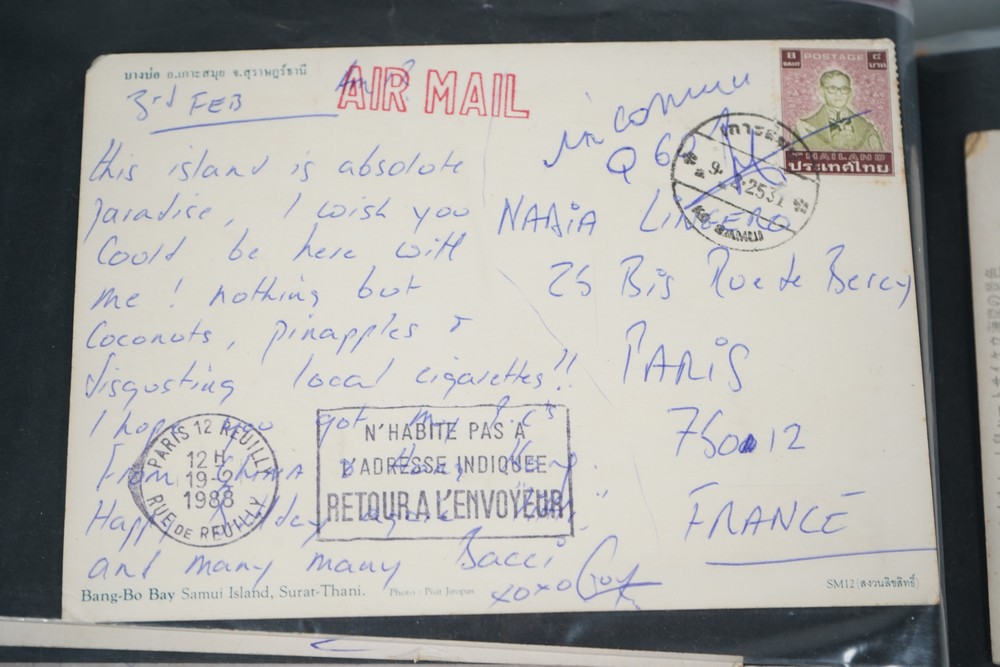 บางบ่อ อ.เกาะสมุย จ.สุราษฎร์ธานี
3rd FEB
AIR MAIL
this island is absolute
paradise, I wish you
Could be here with
me! nothing but
Coconuts, pinapples &
disgusting local cigarettes!!
I hope you got my P.C's
From China & Hong Kong.
Happy Birthday again
and many many Bacci
xoxo Guy
Bang-Bo Bay Samui Island, Surat-Thani.
Photo : Pisit Jiropas
PARIS 12 REUILLY
12 H
19-2
1988
RUE DE REUILLY
N'HABITE PAS A
L'ADRESSE INDIQUEE
RETOUR A L'ENVOYEUR
๘ POSTAGE ๘
BAHT บาท
THAILAND
ประเทศไทย
เกาะสมุย
2531
KO SAMUI
inconnu
Q 62
NADIA LINGERO
25 Bis Rue de Bercy
PARIS
75012
FRANCE
SM12 (สงวนลิขสิทธิ์)